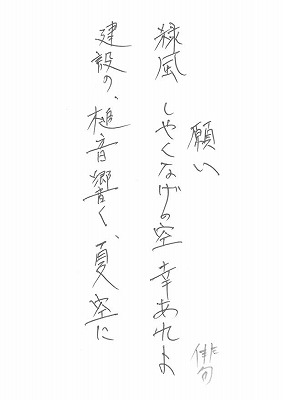 願い
緑風 しゃくなげの空 幸あれよ
建設の、槌音響く、夏空に
俳句